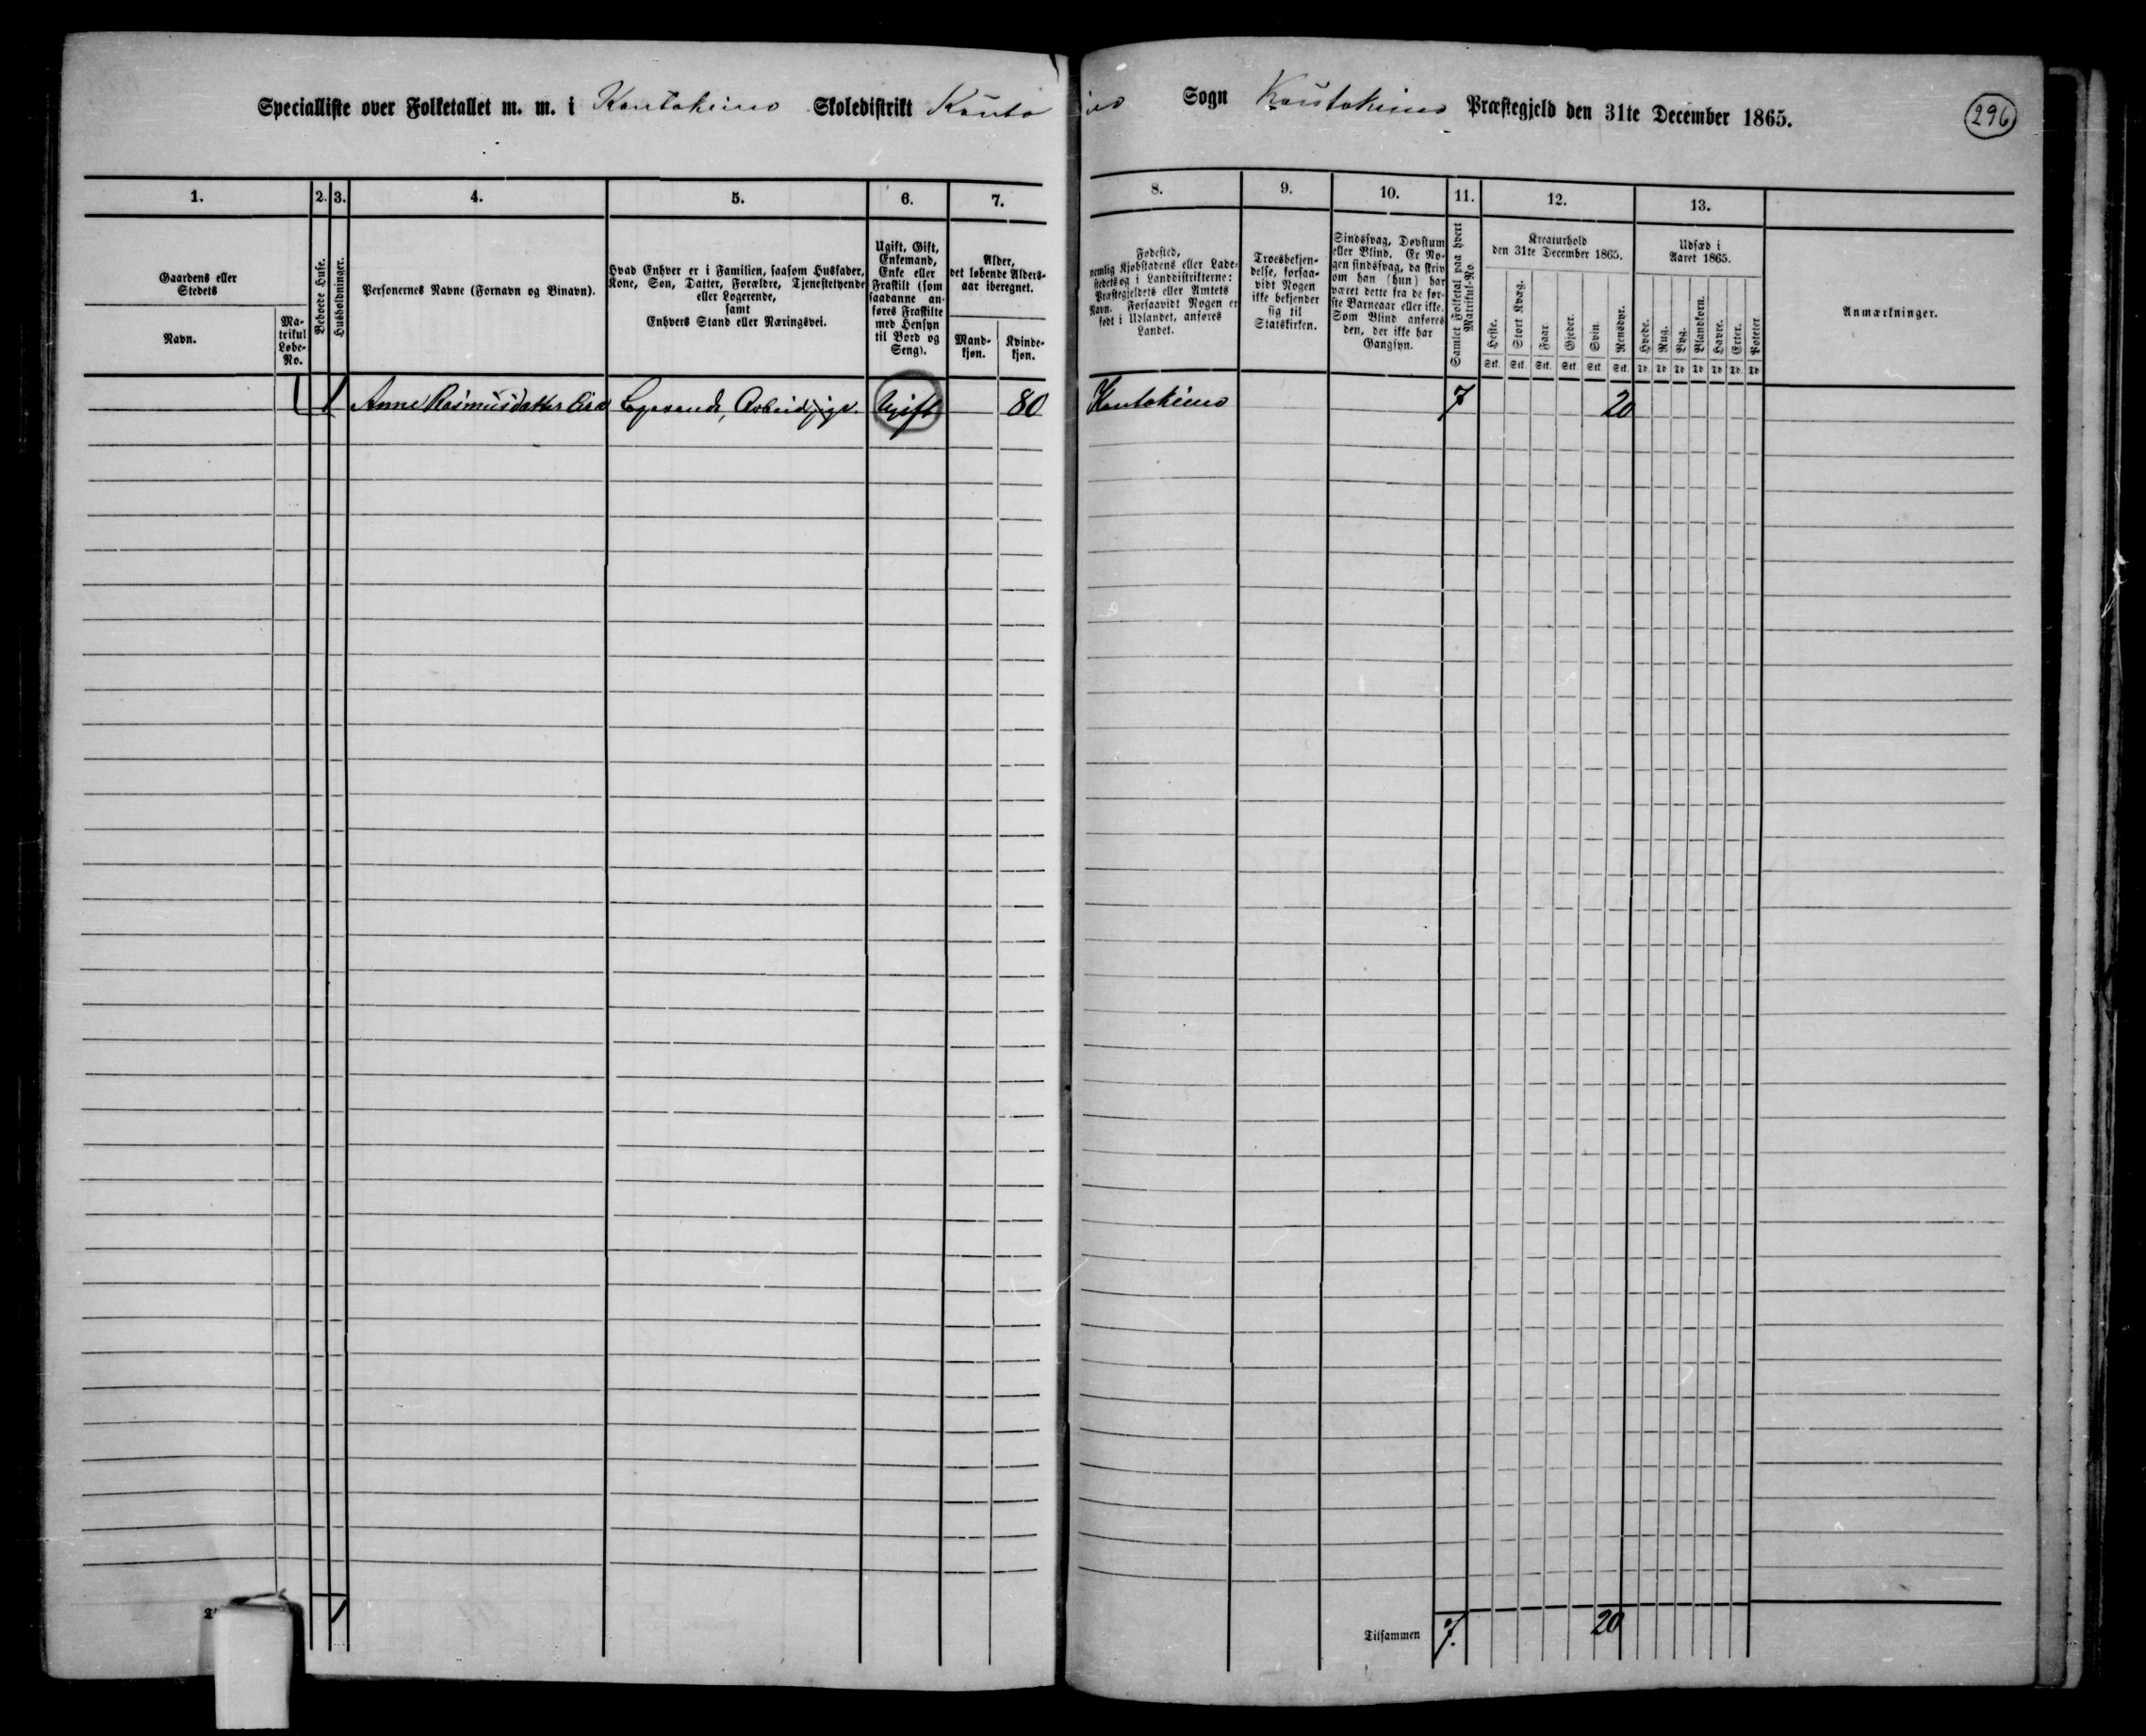 Specialliste over Folketallet m. m. i Koutokeino Skoledistrikt Kouto
ino Sogn Koutokeino Præstegjeld den 31te December 1865.
296
1. 2. 3. 4. 5. 6. 7.
8. 9. 10. 11. 12. 13.
Gaardens eller
Stedets
Navn.
Ma-
trikul
Løbe-
No.
Beboede Huse.
Husholdninger.
Personernes Navne (Fornavn og Binavn).
Hvad Enhver er i Familien, saasom Husfader,
Kone, Søn, Datter, Forældre, Tjenestetyende
eller Logerende,
samt
Enhvers Stand eller Næringsvei.
Ugift, Gift,
Enkemand,
Enke eller
Fraskilt (som
saadanne an-
føres Fraskilte
med Hensyn
til Bord og
Seng).
Alder,
det løbende Alders-
aar iberegnet.
Mand-
kjøn.
Kvinde-
kjøn.
Fødested,
nemlig Kjøbstadens eller Lade-
stedets og i Landdistrikterne:
Præstegjeldets eller Amtets
Navn. Forsaavidt Nogen er
født i Udlandet, anføres
Landet.
Troesbekjen-
delse, forsaa-
vidt Nogen
ikke bekjender
sig til
Statskirken.
Sindssvag, Døvstum
eller Blind. Er No-
gen sindssvag, da skriv
om han (hun) har
været dette fra de før-
ste Barneaar eller ikke.
Som Blind anføres
den, der ikke har
Gangsyn.
Samlet Folketal paa hvert
Matrikul-No.
Kreaturhold
den 31te December 1865.
Heste.
Stort Kvæg.
Faar.
Gjeder.
Svin.
Rensdyr.
Stk. Stk. Stk. Stk. Stk. Stk.
Udsæd i
Aaret 1865.
Hvede.
Rug.
Byg.
Blandkorn.
Havre.
Erter.
Poteter
Td. Td Td Td Td Td. Td
Anmærkninger.
1 Anne Rasmusdatter Logerende, Arbeidspige. Ugift 80 Koutokeino 7 20
1
Tilsammen 7. 20